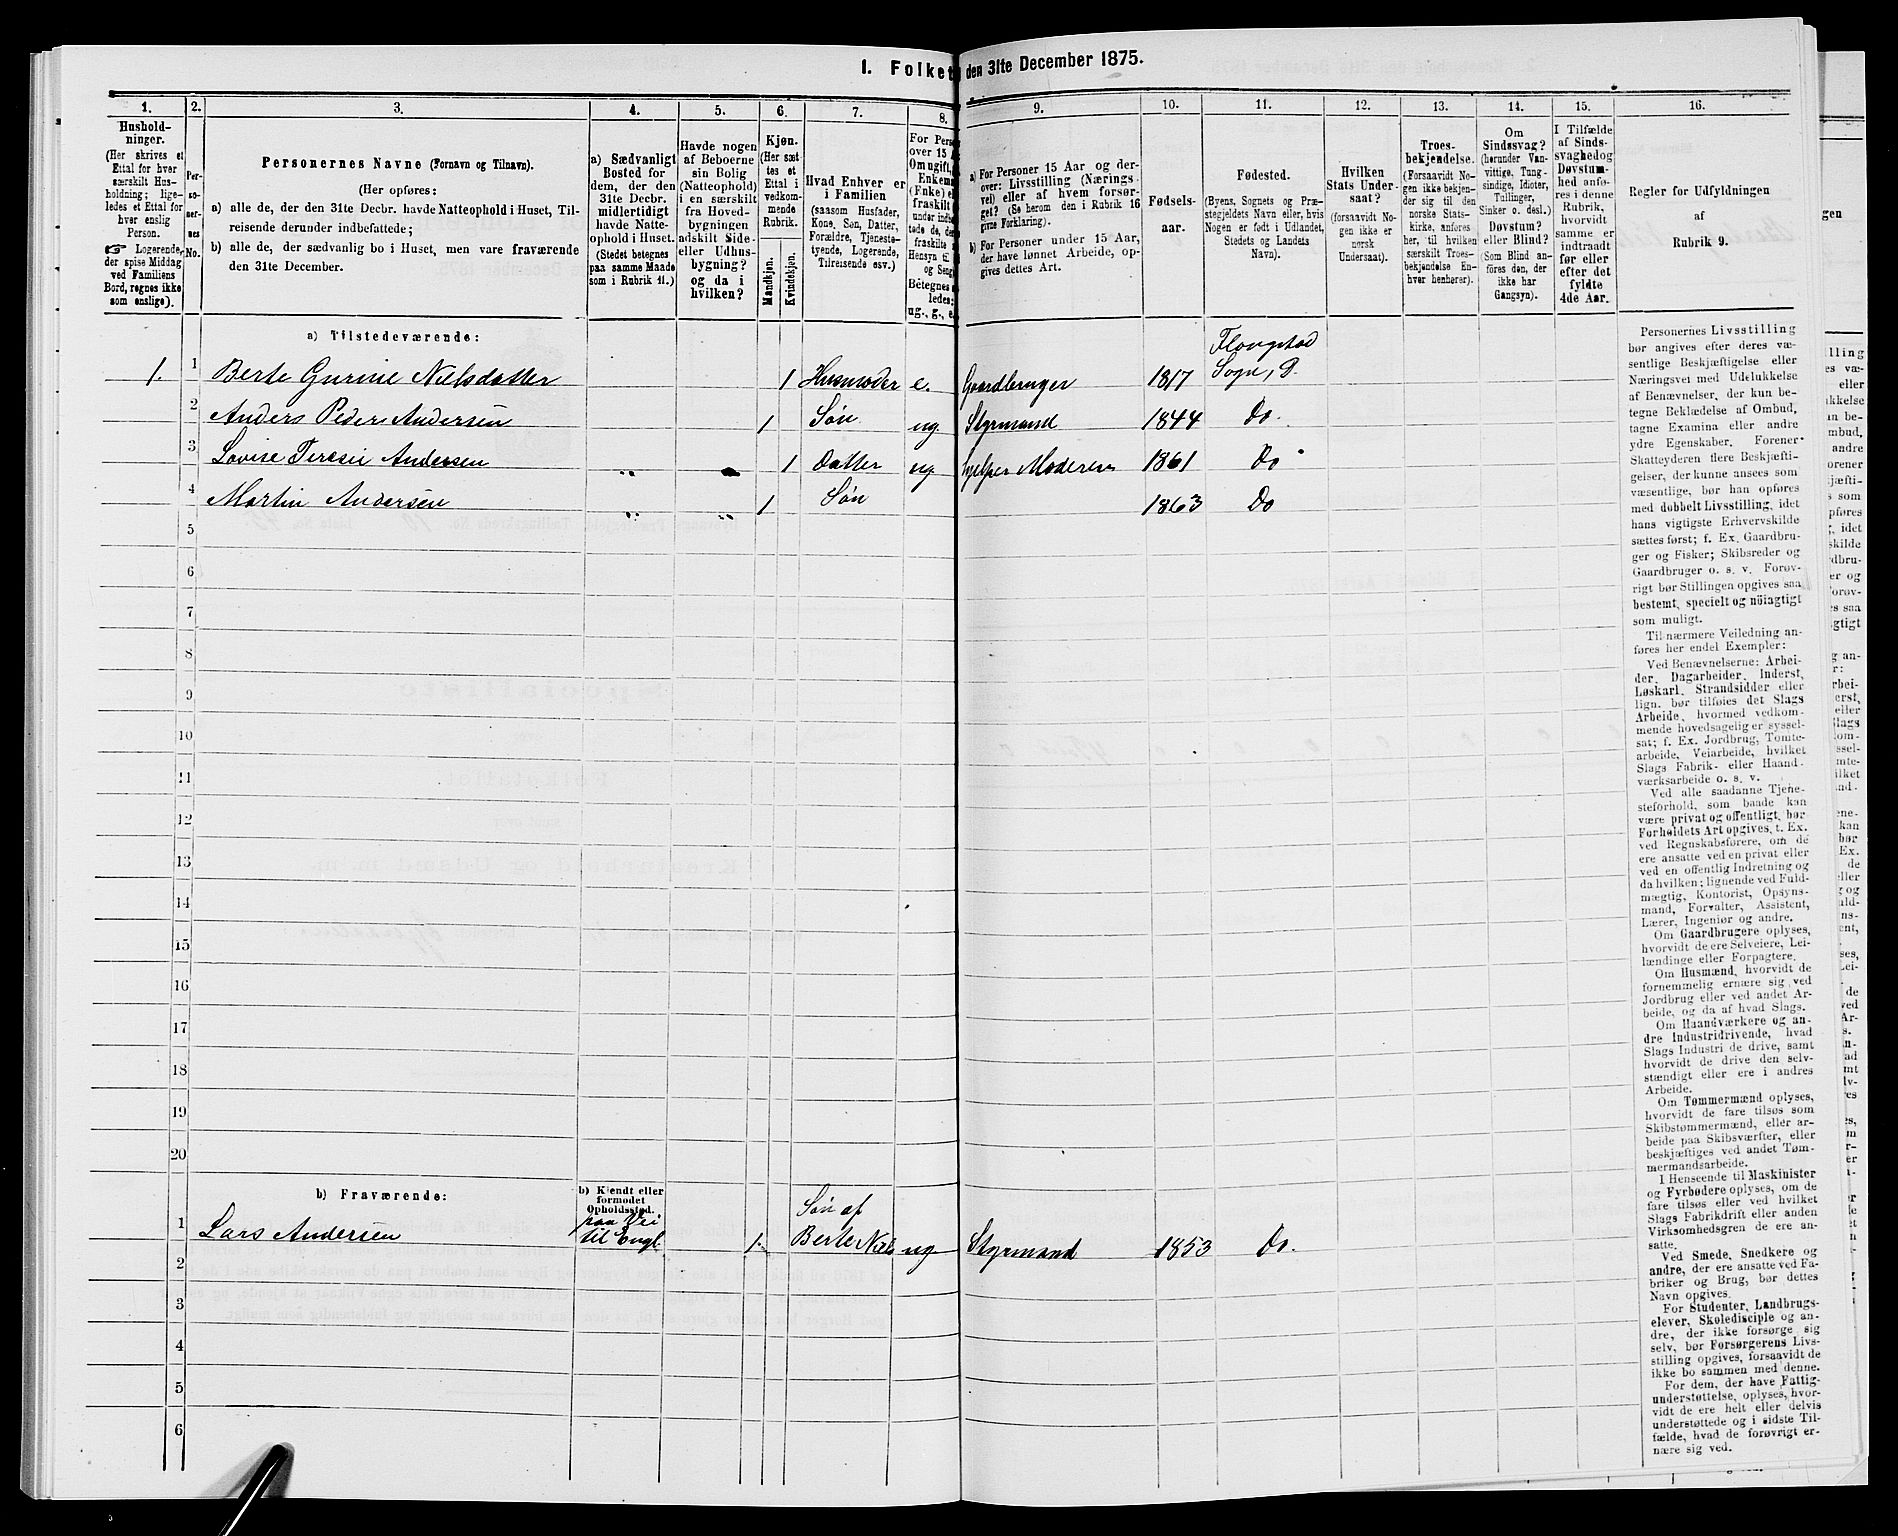 I. Folket den 31te December 1875.
1.
2.
3.
4.
5.
6.
7.
8.
9.
10.
11.
12.
13.
14.
15.
16.
Hushold-
ninger.
(Her skrives et
Ettal for hver
særskilt Hus-
holdning; lige-
ledes et Ettal for
hver enslig
Person.
☞ Logerende,
der spise Middag
ved Familiens
Bord, regnes ikke
som enslige).
Per-
so-
ner-
nes
No.
Personernes Navne (Fornavn og Tilnavn).
(Her opføres:
a) alle de, der den 31te Decbr. havde Natteophold i Huset, Til-
reisende derunder indbefattede;
b) alle de, der sædvanlig bo i Huset, men vare fraværende
den 31te December.
a) Sædvanligt
Bosted for
dem, der den
31te Decbr.
midlertidigt
havde Natte-
ophold i Huset.
(Stedet betegnes
paa samme Maade
som i Rubrik 11.)
Havde nogen
af Beboerne
sin Bolig
(Natteophold)
i en særskilt
fra Hoved-
bygningen
adskilt Side-
eller Udhus-
bygning?
og da i
hvilken?
Kjøn.
(Her sæt-
tes et
Ettal i
vedkom-
mende
Rubrik.
Mandkjøn.
Kvindekjøn.
Hvad Enhver er
i Familien
(saasom Husfader,
Kone, Søn, Datter,
Forældre, Tjeneste-
tyende, Logerende,
Tilreisende osv.)
For Perso
over 15 A
Om ugift,
Enkema
(Enke) e
fraskilt
under indbe
tede de, der
fraskilte
Hensyn til
og Seng
Betegnes
ledes:
ug., g., e.
a) For Personer 15 Aar og der-
over: Livsstilling (Nærings-
vei) eller af hvem forsør-
get? (Se herom den i Rubrik 16
givne Forklaring).
b) For Personer under 15 Aar,
der have lønnet Arbeide, op-
gives dettes Art.
Fødsels-
aar.
Fødested.
(Byens, Sognets og Præ-
stegjeldets Navn eller, hvis
Nogen er født i Udlandet,
Stedets og Landets
Navn).
Hvilken
Stats Under-
saat?
(forsaavidt No-
gen ikke er
norsk
Undersaat).
Troes-
bekjendelse.
(Forsaavidt No-
gen ikke bekjen-
der sig til den
norske Stats-
kirke, anføres
her, til hvilken
særskilt Troes-
bekjendelse En-
hver henhører).
Om
Sindssvag?
(herunder Van-
vittige, Tung-
sindige, Idioter,
Tullinger,
Sinker o. desl.)
Døvstum?
eller Blind?
(Som Blind an-
føres den, der
ikke har
Gangsyn).
I Tilfælde
af Sinds-
svaghed og
Døvstum-
hed anfø-
res i denne
Rubrik,
hvorvidt
samme er
indtraadt
før eller
efter det
fyldte
4de Aar.
Regler for Udfyldningen
af
Rubrik 9.
a) Tilstedeværende:
1. 1 Berte Gurine Nielsdatter 1 Husmoder e. Gaardbruger 1817 Sogn, P.
2 Anders Peder Andersen 1 Søn ug Styrmand 1844 Do.
3 Lovise Teresie Andersen „ 1 Datter ug hjelper Moderen 1861 Do
4 Martin Andersen „ „ 1 Søn 1863 Do
5
6
7
8
9
10
11
12
13
14
15
16
17
18
19
20
b) Fraværende:
b) Kjendt eller
formodet
Opholdssted.
1 Lars Andersen paa Vei
til Engl. 1. Søn af
Berte Niels ug Styrmand 1853 Do.
2
3
4
5
6
Personernes Livsstilling
bør angives efter deres væ-
sentlige Beskjæftigelse eller
Næringsvei med Udelukkelse
af Benævnelser, der kun be-
tegne Beklædelse af Ombud,
tagne Examina eller andre
ydre Egenskaber. Forener
Skatteyderen flere Beskjæfti-
gelser, der kunne ansees som
væsentlige, bør han opføres
med dobbelt Livsstilling, idet
hans vigtigste Erhvervskilde
sættes først; f. Ex. Gaardbru-
ger og Fisker; Skibsreder og
Gaardbruger o. s. v. Forøv-
rigt bør Stillingen opgives saa
bestemt, specielt og nöiagtigt
som muligt.
Til nærmere Veiledning an-
føres her endel Exempler:
Ved Benævnelserne: Arbei-
der, Dagarbeider, Inderst,
Løskarl, Strandsidder eller
lign. bør tilføies det Slags
Arbeide, hvormed vedkom-
mende hovedsagelig er syssel-
sat; f. Ex. Jordbrug, Tomte-
arbeide, Veiarbeide, hvilket
Slags Fabrik- eller Haand-
værksarbeide o. s. v.
Ved alle saadanne Tjene-
steforhold, som baade kan
være privat og offentligt, bør
Forholdets Art opgives, t. Ex.
ved Regnskabsførere, om de
ere ansatte ved en privat eller
ved en offentlig Indretning og
da hvilken; lignende ved Fuld-
mægtig, Kontorist, Opsyns-
mand, Forvalter, Assistent,
Lærer, Ingeniør og andre.
Om Gaardbrugere oplyses,
hvorvidt de ere Selveiere, Lei-
lændinge eller Forpagtere.
Om Husmænd, hvorvidt de
fornemmelig ernære sig ved
Jordbrug eller ved andet Ar-
beide, og da af hvad Slags.
Om Haandværkere og an-
dre Industridrivende, hvad
Slags Industri de drive, samt
hvorvidt de drive den selv-
stændigt eller ere i andres
Arbeide.
Om Tømmermænd oplyses,
hvorvidt de fare tilsøs som
Skibstømmermænd, eller ar-
beide paa Skibsværfter, eller
beskjæftiges ved andet Tøm-
mermandsarbeide.
I Henseende til Maskinister
og Fyrbødere oplyses, om de
fare tilsøs eller ved hvilket
Slags Fabrikdrift eller anden
Virksomhedsgren de ere an-
satte.
Ved Smede, Snedkere og
andre, der ere ansatte ved Fa-
briker og Brug, bør dettes
Navn opgives.
For Studenter, Landbrugs-
elever, Skoledisciple og an-
dre, der ikke forsørge sig
selv, bør Forsørgerens Livs-
stilling opgives, forsaavidt de
ikke bo sammen med denne.
For dem, der have Fattig-
understøttelse, oplyses, hvor-
vidt de ere helt eller delvis
understøttede og i sidste Til-
fælde, hvad de forøvrigt er-
nære sig ved.